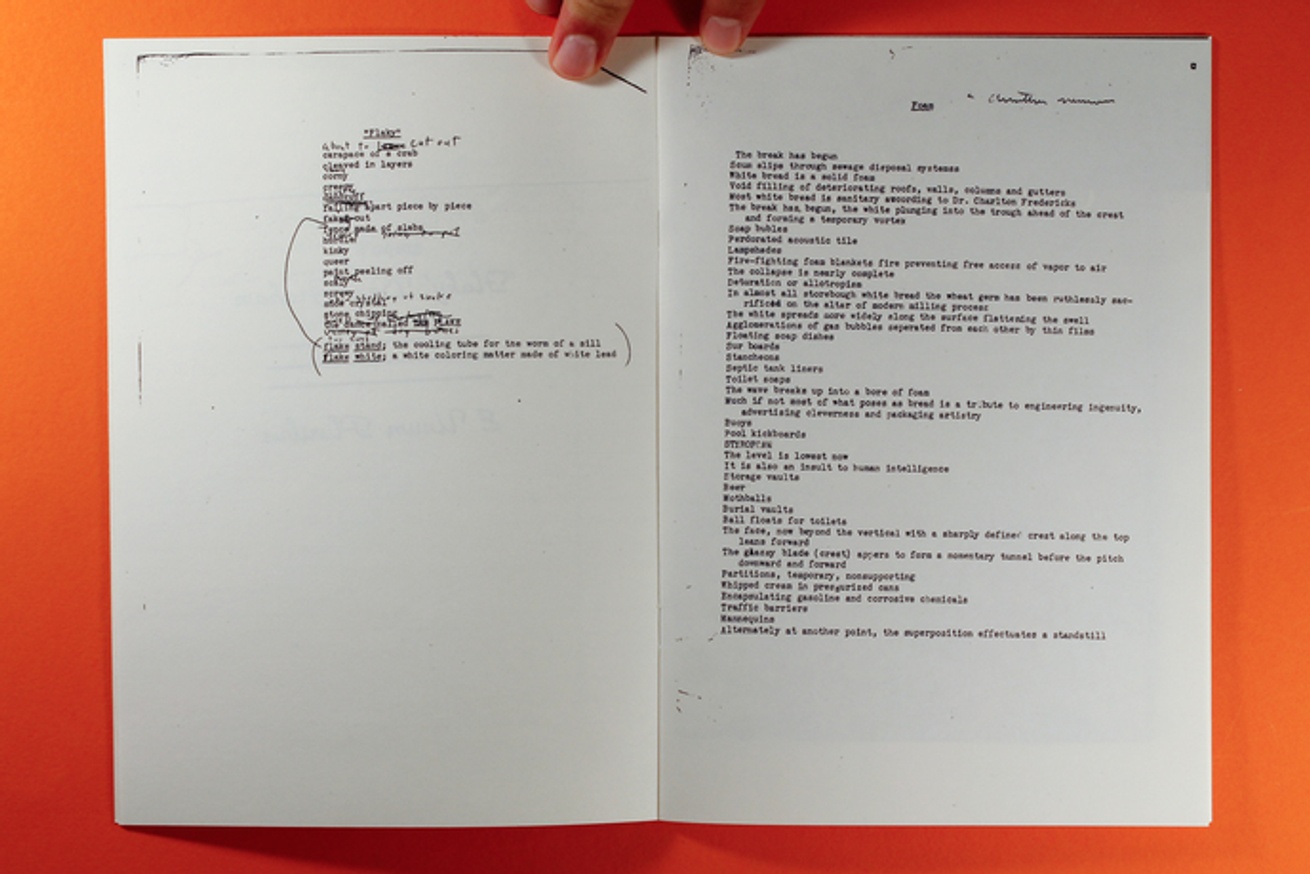 "Flaky"
about to cut out
carapace of a crab
cleaved in layers
corny
creepy
dandruff
falling apart piece by piece
faked out
fence made of slabs
handle
kinky
queer
paint peeling off
scaly
screwy
snow crystal
stone chipping
flake stand; the cooling tube for the worm of a sill
flake white; a white coloring matter made of white lead
Foam
The break has begun
Scum slips through sewage disposal systemss
White bread is a solid foam
Void filling of deteriorating roofs, walls, columns and gutters
Most white bread is sanitary according to Dr. Charlton Fredericks
The break has begun, the white plunging into the trough ahead of the crest
and forming a temporary vortex
Soap bubles
Perforated acoustic tile
Lampshades
Fire-fighting foam blankets fire preventing free access of vapor to air
The collapse is nearly complete
Detoration or allotropism
In almost all storebough white bread the wheat germ has been ruthlessly sac-
rificed on the alter of modern milling process
The white spreads more widely along the surface flattening the swell
Agglomerations of gas bubbles seperated from each other by thin films
Floating soap dishes
Sur boards
Stancheons
Septic tank liners
Toilet soaps
The wave breaks up into a bore of foam
Much if not most of what poses as bread is a tribute to engineering ingenuity,
advertising cleverness and packaging artistry
Buoys
Pool kickboards
The level is lowest now
It is also an insult to human intelligence
Storage vaults
Beer
Mothballs
Burial vaults
Ball floats for toilets
The face, now beyond the vertical with a sharply defined crest along the top
leans forward
The glassy blade (crest) appers to form a momentary tunnel before the pitch
downward and forward
Partitions, temporary, nonsupporting
Whipped cream in pressurized cans
Encapsulating gasoline and corrosive chemicals
Traffic barriers
Mannequins
Alternately at another point, the superposition effectuates a standstill